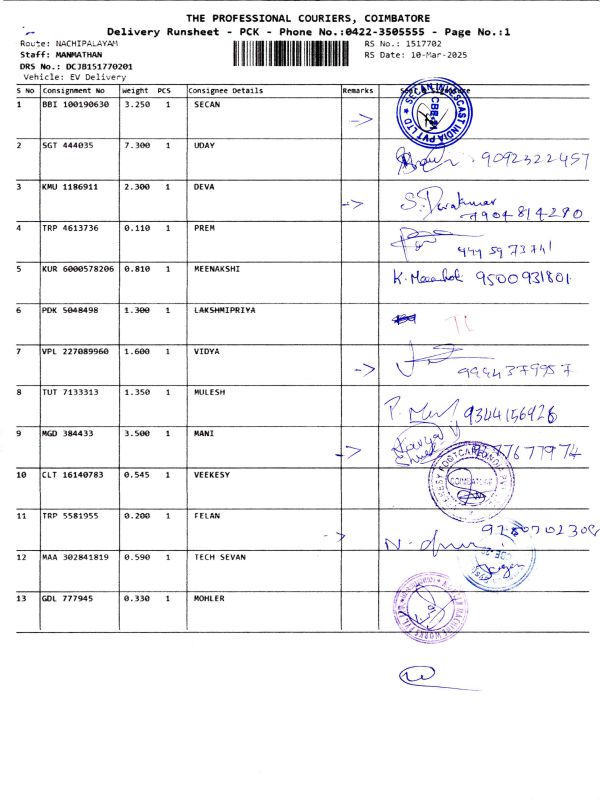 THE PROFESSIONAL COURIERS, COIMBATORE
Delivery Runsheet - PCK - Phone No.:0422-3505555 - Page No.:1
Route: NACHIPALAYAM RS No.: 1517702
Staff: MANMATHAN RS Date: 10-Mar-2025
DRS No.: DCJB151770201
Vehicle: EV Delivery
S No Consignment No Weight PCS Consignee Details Remarks Seal & Signature
1 BBI 100190630 3.250 1 SECAN
2 SGT 444035 7.300 1 UDAY 9092322457
3 KMU 1186911 2.300 1 DEVA
7904814280
4 TRP 4613736 0.110 1 PREM
9445973741
5 KUR 6000578206 0.810 1 MEENAKSHI 9500931801
6 PDK 5048498 1.300 1 LAKSHMIPRIYA
7 VPL 227089960 1.600 1 VIDYA
9994379957
8 TUT 7133313 1.350 1 MULESH 9344156926
9 MGD 384433 3.500 1 MANI
10 CLT 16140783 0.545 1 VEEKESY
COIMBATORE
11 TRP 5581955 0.200 1 FELAN
12 MAA 302841819 0.590 1 TECH SEVAN
13 GDL 777945 0.330 1 MOHLER